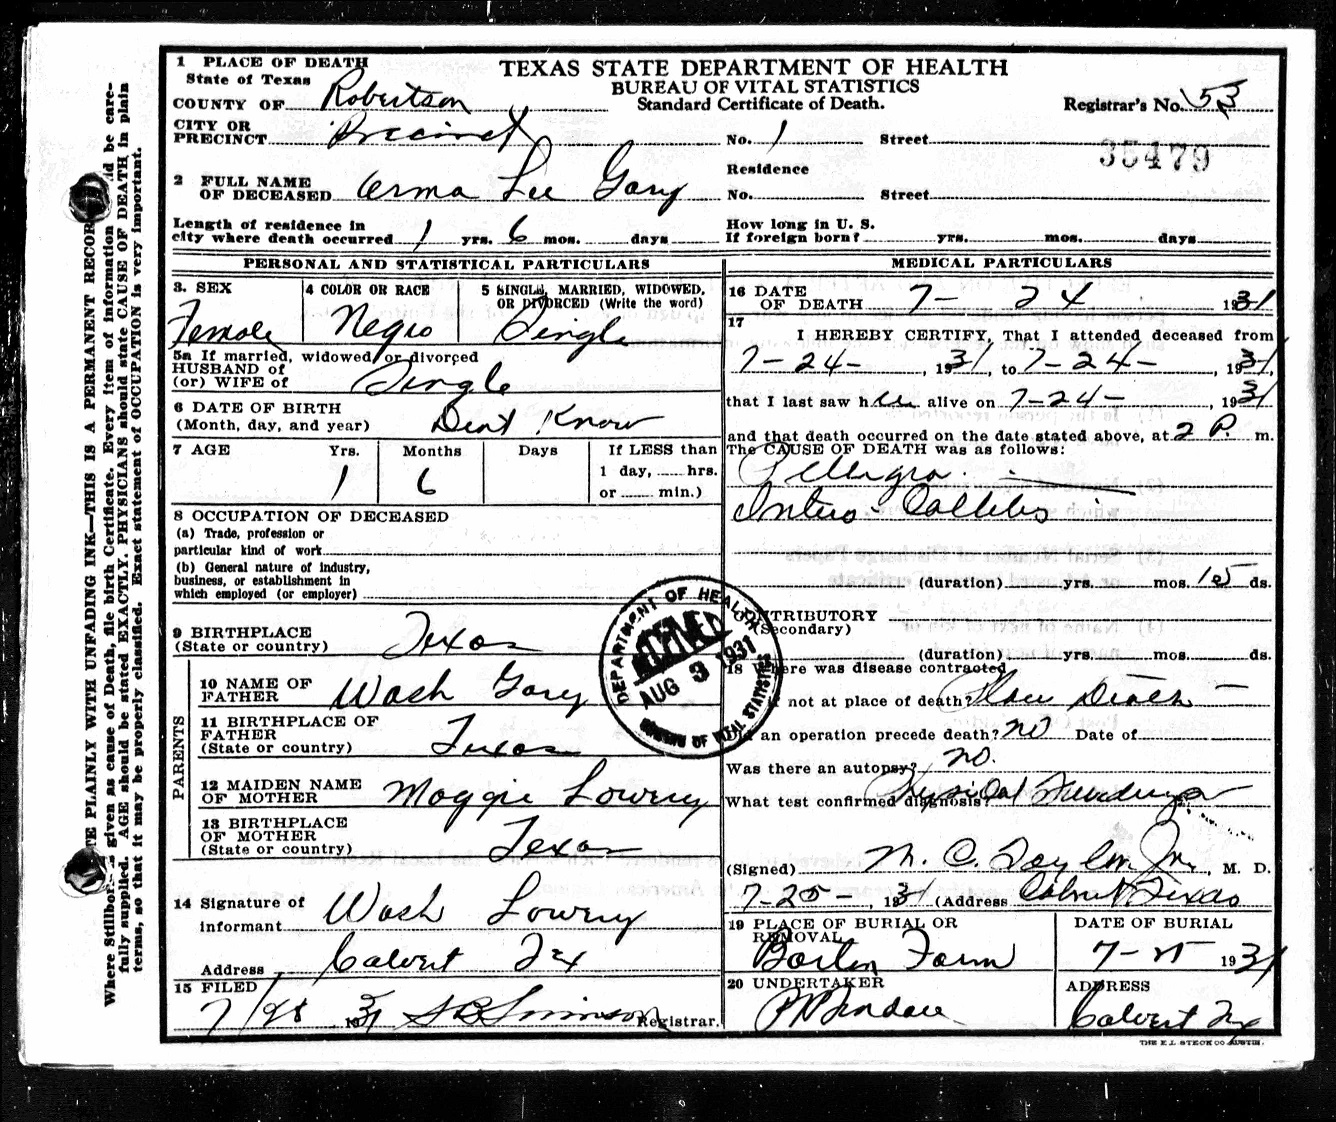 1 PLACE OF DEATH
State of Texas
COUNTY OF Robertson
CITY OR
PRECINCT Precinct
TEXAS STATE DEPARTMENT OF HEALTH
BUREAU OF VITAL STATISTICS
Standard Certificate of Death.
Registrar's No. 53
No. 1 Street
35479
2 FULL NAME
OF DECEASED Arma Lee Gary
Residence
No. Street
Length of residence in
city where death occurred 1 yrs. 6 mos. days
How long in U. S.
If foreign born? yrs. mos. days
PERSONAL AND STATISTICAL PARTICULARS
3. SEX 4 COLOR OR RACE 5 SINGLE, MARRIED, WIDOWED,
OR DIVORCED (Write the word)
Female Negro Single
5a If married, widowed or divorced
HUSBAND of
(or) WIFE of Single
6 DATE OF BIRTH
(Month, day, and year) Dont Know
7 AGE Yrs. Months Days If LESS than
1 day, hrs.
or min.)
1 6
8 OCCUPATION OF DECEASED
(a) Trade, profession or
particular kind of work
(b) General nature of industry,
business, or establishment in
which employed (or employer)
9 BIRTHPLACE
(State or country) Texas
PARENTS
10 NAME OF
FATHER Wash Gary
11 BIRTHPLACE OF
FATHER
(State or country) Texas
12 MAIDEN NAME
OF MOTHER Maggie Lowery
13 BIRTHPLACE
OF MOTHER
(State or country) Texas
14 Signature of
informant Wash Lowery
Address Calvert Tex
15 FILED
7/28 1931 Registrar.
MEDICAL PARTICULARS
16 DATE
OF DEATH 7- 24 1931
17
I HEREBY CERTIFY, That I attended deceased from
7-24-, 1931, to 7-24-, 1931,
that I last saw her alive on 7-24-, 1931
and that death occurred on the date stated above, at 2 P. m.
The CAUSE OF DEATH was as follows:
Pellagra.
Entero-Collitis
(duration) yrs. mos. 15 ds.
CONTRIBUTORY
(Secondary)
(duration) yrs. mos. ds.
18 Where was disease contracted
if not at place of death? Place Death -
Did an operation precede death? no Date of
Was there an autopsy? no.
What test confirmed diagnosis? Physical
(Signed) N. C. Taylor Jr., M. D.
7-25-, 1931 (Address Calvert Texas
19 PLACE OF BURIAL OR
REMOVAL
Farm
DATE OF BURIAL
7-25 1931
20 UNDERTAKER
ADDRESS
Calvert Tex
THE E.L. STECK CO. AUSTIN.
DEPARTMENT OF HEALTH
RECEIVED
AUG 3 1931
BUREAU OF VITAL STATISTICS
WRITE PLAINLY WITH UNFADING INK—THIS IS A PERMANENT RECORD
Where Stillborn given as cause of Death, file birth Certificate. Every item of information should be care-
fully supplied. AGE should be stated EXACTLY. PHYSICIANS should state CAUSE OF DEATH in plain
terms, so that it may be properly classified. Exact statement of OCCUPATION is very important.